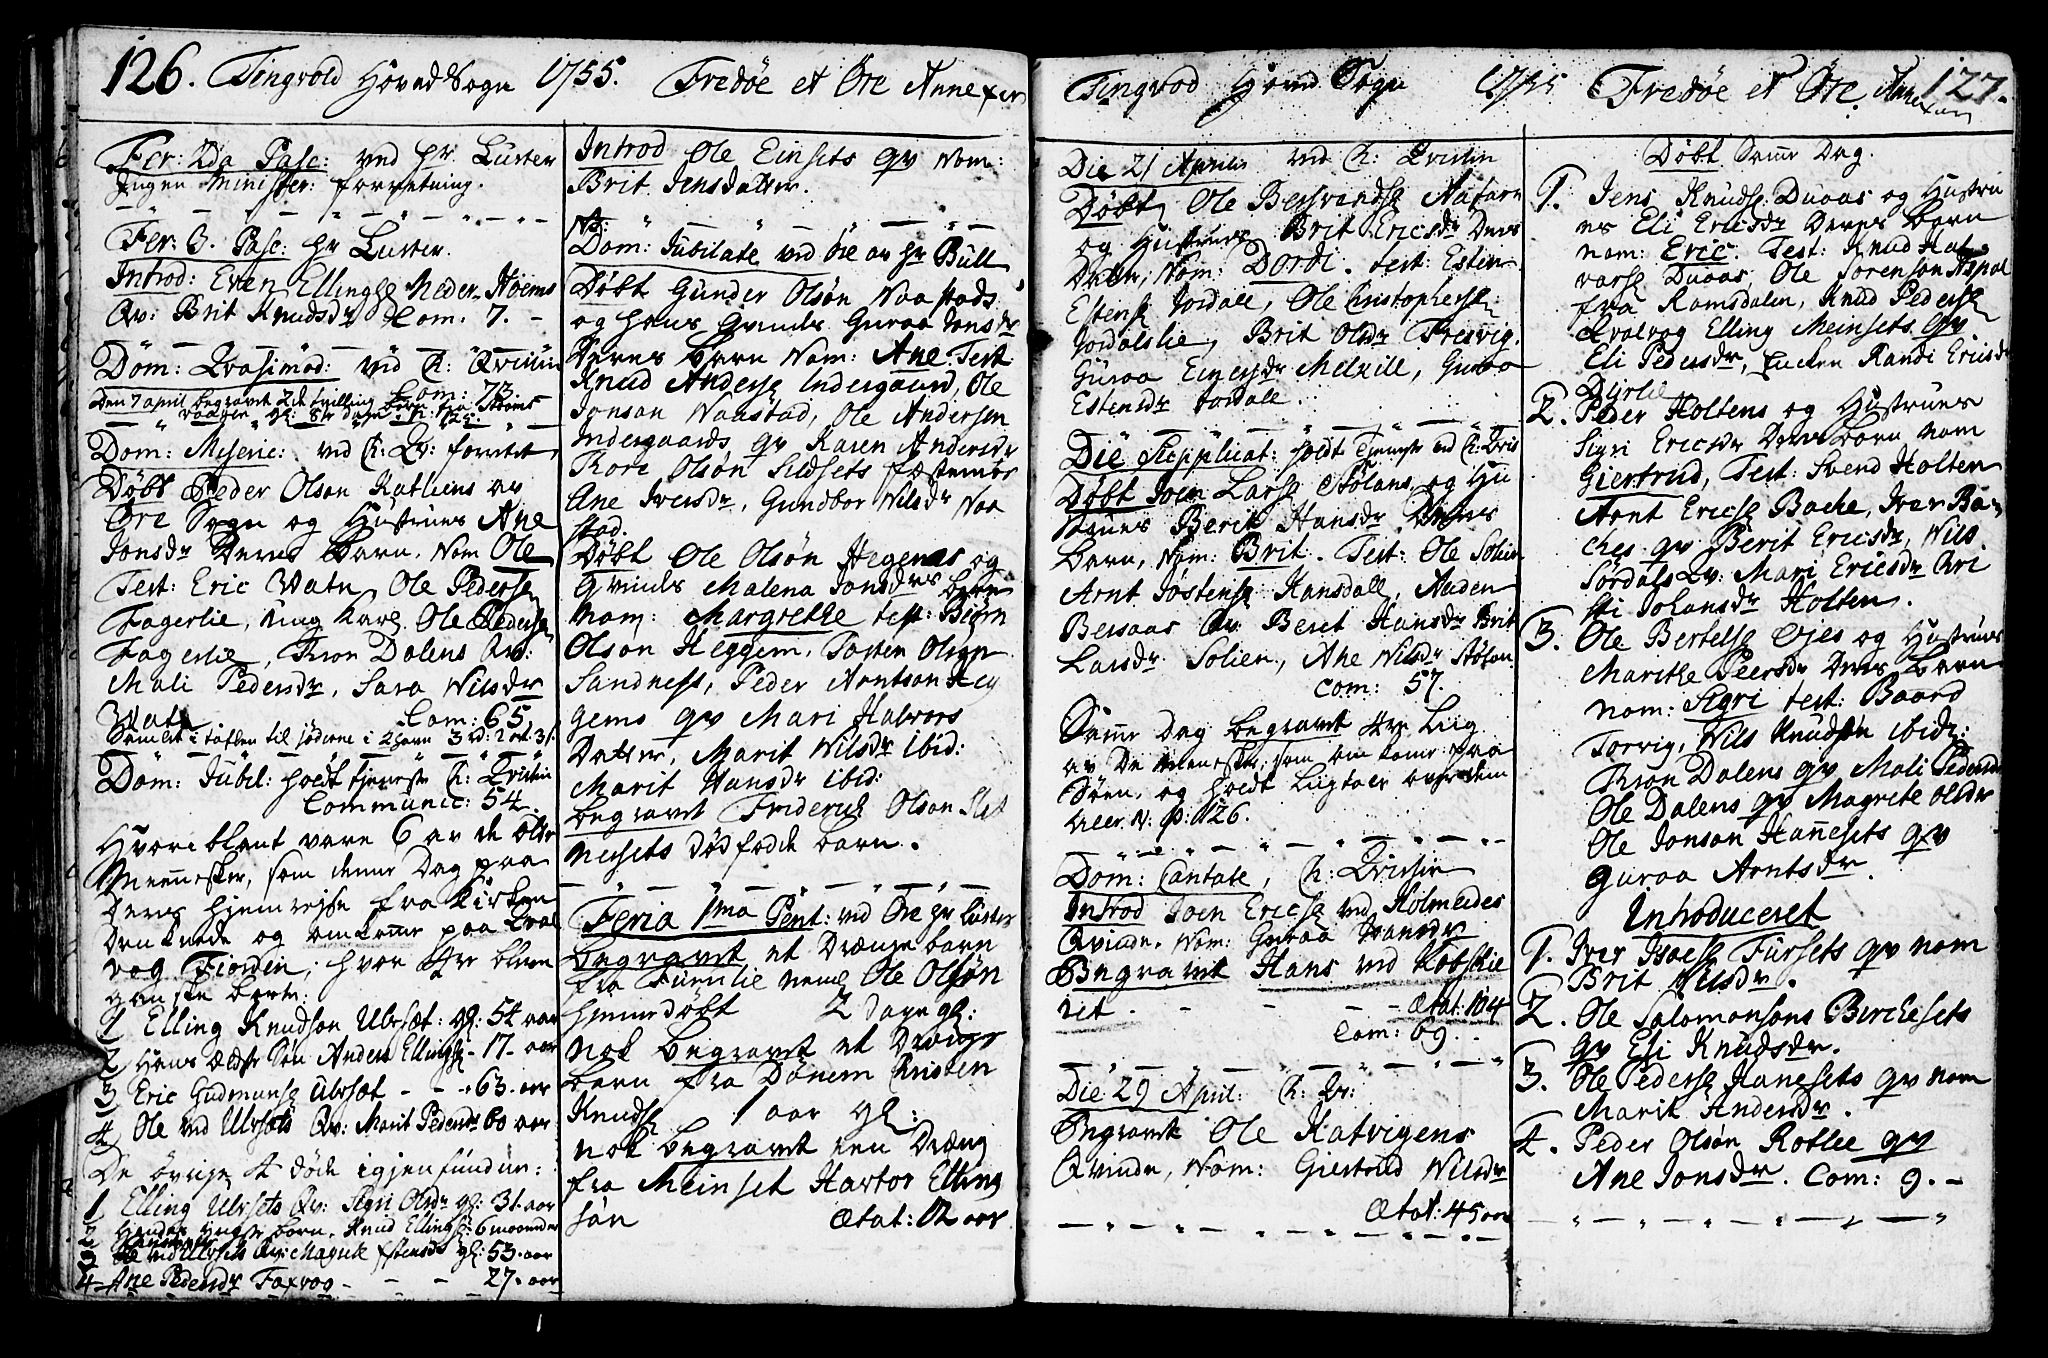 126. Tingvold Hoved Sogn 1755. Fredøe et Øre Annexer
Fer: 2da Pasc: ved Hr. Luster
Ingen Minister: forretning.
Fer: 3. Pasc: Hr Luster.
Introd: Even Ellingss Neder Høems
Qv: Brit Knudsdr Com: 7. -
Dom: Qvasimod: ved Ch: Qvistin
Den 7 april begravet 2de tvilling
Com: 73.
Dom: Miseric: ved Ch: Qv: forrettet
Døbt Peder Olson Rathiens av
Øre Sogn og Hustrues Ane
Jonsdr Deres Barn. Nom Ole
Test: Eric Vatn, Ole Pederss
Fagerlie, Ung Karl Ole Pederss
Fagerlie, Tron Dalens Qv:
Mali Pedersdr, Sara Nilsdr
Vatn
Com: 65
Samlet i taflen til jøderne i 2
Dom: Jubil: holdt tjeneste Ch: Qvistin
Communic: 54.
Hvoriblant vare 6 av de Otte
Mennesker, som denne Dag paa
deres hjemrejse fra Kirken
Druknede og omkomme paa Qval
vog Fjorden, hvor 4re bleve
ganske borte:
1 Elling Knudson Ulvsæt: gl: 54 aar
2 Hans ældste Søn Anders Ellingss - 17 - aar
3 Eric Gudmunss Ulvsæt - - - 63. aar
4 Ole ved Ulvsæts Qv: Marit Pedersdr 60 aar
De øvrige 4 døde igjenfunden:
1 Elling Ulvsets Qv: Sigri Olsdr gl: 31. aar
2 Hendes unge barn. Knud Ellingss: 6 maaneder
3 Ole ved Ulvsets Qv: Magrete Estensdr gl: 53. aar
4 Ane Pedersdr Faxvog - - - 27. aar
Introd Ole Einsets qv Nom:
Brit Jensdatter.
Dom: Jubilate ved Øre av Hr Bull
Døbt Gunder Olsøn Naastads
og hans Qvindes Guraa Jonsdr
Deres Barn Nom: Ane. Test
Knud Anderss Indergaard, Ole
Jonson Naastad, Ole Andersen
Indergaards qv Karen Andersdr
Rore Olsøn Sildsets fæstemøe
Ane Iversdr, Gundbor Nilsdr Naa
stad.
Døbt Ole Olsøn Hegenas og
Qvindes Malena Jonsdrs Barn
Nom: Margrethe test: Biørn
Olson Heggem, Tosten Olson
Sandness, Peder Arntson Heg
gems qv Mari Halvors
Datter, Marit Nilsdr ibid:
Marit Hansdr ibid:
Begravet Friderik Olson Slat
nesets dødfødde barn.
Feria 1ma Pent: ved Øre Hr Luster
Begravet et Drænge barn
fra Furulie navnl Ole Olsøn
hjemmedøbt 2 dage gl:
nok begravet et Drænge
barn fra Dønem Christen
Knudss 1 aar gl:
nok begravet een Dræng
fra Meinset Hartor Elling
søn Ætat: 12 aar
Tingvold Hoved Sogn 1755 Fredøe et Øre Annexer 127.
Die 21 Aprilis ved Ch: Qvistin
Døbt Ole Bersvendss Aafarn
og Hustrues Brit Ericsdr Deres
Barn, Nom: Dordi. test: Esten
Estenss Jordale, Ole Christopherss
Jordalslie, Brit Olsdr Tresvig.
Guroa Einersdr Melkill, Guroa
Estensdr Jordall.
Die Supplicat: holdt Tjeneste ved Ch: Qvis
Døbt Joen Larss Stølans og Hu
struues Berit Hansdr Deres
Barn, Nom: Brit. Test: Ole Solien
Arnt Jøstenss Hansdall, Auden
Bersaas Qv Beret Hansdr Brit
Larsdr Solien, Ane Nilsdr Stølan
Com: 57.
Samme Dag begravet 4re Liig
av De mennesker som omkomme paa
Søen, og holdt Liigtaler over dem
aller N: p: 126.
Dom: Cantate, Ch: Qvistin
Introd Joen Ericss ved Holmeides
Qvinde. Nom: Guroa Ivarsdr
Begravet Hans ved Kobskie
ret. - - - Ætat: 104
Com: 69.
Die 29 April: Ch: Qv:
Begravet Ole Hatvigens
Qvinde, Nom: Giertrud Nilsdr
Ætat: 45 aar
Døbt Samme Dag.
1. Jens Knudss Duaas og Hustru
es Eli Ericsdr Deres Barn
nom: Eric. Test: Knud Hal
varss Duaas, Ole Sørenson Aspøl
fra Romsdalen, Knud Pederss
Qvalvog Elling Meinsets qv
Eli Pedersdr, Enken Randi Ericsdr
Dyrlie
2. Peder Holtens og Hustrues
Sigri Ericsdr Deres Barn nom
Giertrud, Test: Svend Holten
Arnt Ericss Bache, Iver Ba-
ches qv Berit Ericsdr, Nils
Sørdals Qv: Mari Ericsdr Kri
sti Johansdr Holten.
3. Ole Bertelss Øjes og Hustrues
Marithe Peersdr Deres Barn
nom: Sigri test: Baard
Torvig, Nils Knudsøn ibid:
Tron Dalens qv Mali Pedersdr
Ole Dalens qv Magrete Olsdr
Ole Jonson Hannesets qv
Guroa Arntsdr.
Introduceret
1. Iver Isaess Fursets qv nom
Brit Nilsdr.
2. Ole Salomonsons Berchesets
qv Eli Knudsdr.
3. Ole Pederss Hanesets qv nom
Marit Andersdr.
4. Peder Olsøn Rotlie qv
Ane Jonsdr. Com: 9. -